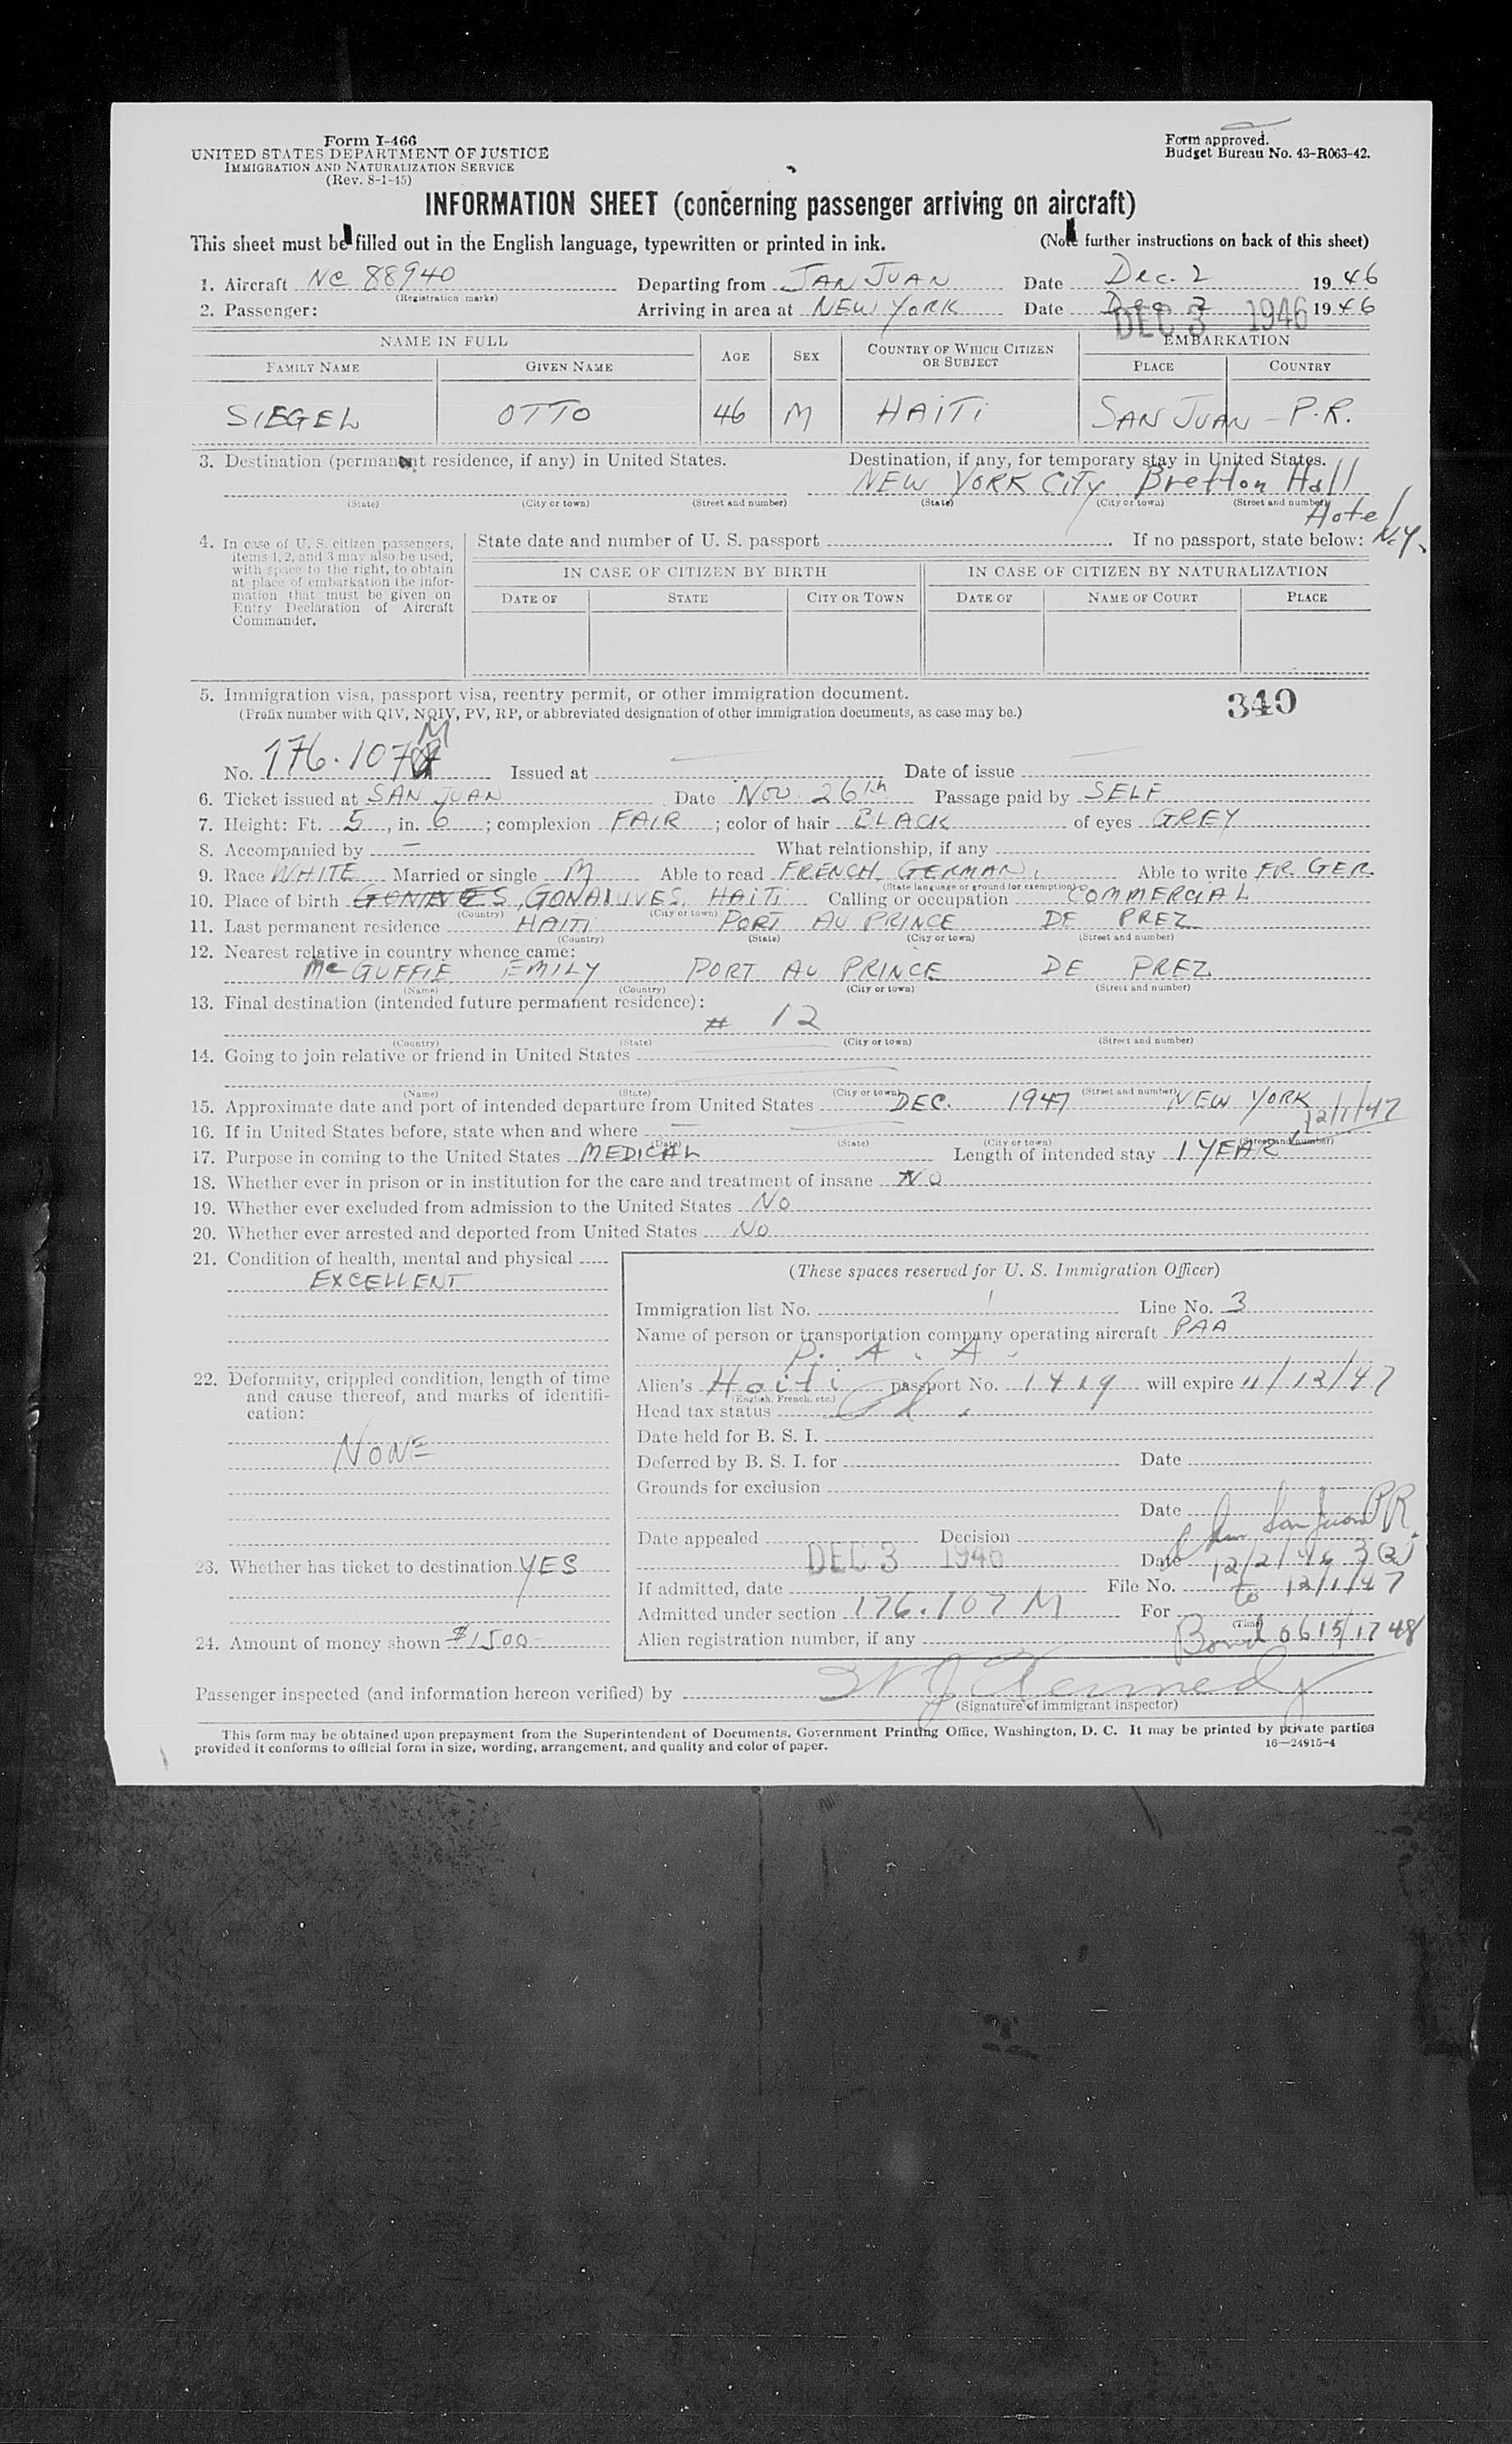 Form I-466
UNITED STATES DEPARTMENT OF JUSTICE
IMMIGRATION AND NATURALIZATION SERVICE
(Rev. 8-1-45)
Form approved.
Budget Bureau No. 43-R063-42.
INFORMATION SHEET (concerning passenger arriving on aircraft)
This sheet must be filled out in the English language, typewritten or printed in ink. (Note further instructions on back of this sheet)
1. Aircraft NC 88940 Departing from SAN JUAN Date Dec. 2 1946
(Registration marks)
2. Passenger: Arriving in area at NEW YORK Date Dec 2 1946
DEC 3 1946
NAME IN FULL AGE SEX COUNTRY OF WHICH CITIZEN OR SUBJECT EMBARKATION
FAMILY NAME GIVEN NAME PLACE COUNTRY
SIEGEL OTTO 46 M HAITI SAN JUAN - P.R.
3. Destination (permanent residence, if any) in United States. Destination, if any, for temporary stay in United States.
NEW YORK CITY Bretton Hall
(State) (City or town) (Street and number) (State) (City or town) (Street and number)
Hotel N.Y.
4. In case of U. S. citizen passengers, items 1, 2, and 3 may also be used, with space to the right, to obtain at place of embarkation the information that must be given on Entry Declaration of Aircraft Commander.
State date and number of U. S. passport If no passport, state below:
IN CASE OF CITIZEN BY BIRTH IN CASE OF CITIZEN BY NATURALIZATION
DATE OF STATE CITY OR TOWN DATE OF NAME OF COURT PLACE
5. Immigration visa, passport visa, reentry permit, or other immigration document.
(Prefix number with QIV, NQIV, PV, RP, or abbreviated designation of other immigration documents, as case may be.)
340
No. 176.107 M Issued at Date of issue
6. Ticket issued at SAN JUAN Date Nov. 26th Passage paid by SELF
7. Height: Ft. 5, in. 6; complexion FAIR; color of hair BLACK of eyes GREY
8. Accompanied by — What relationship, if any
9. Race WHITE Married or single M Able to read FRENCH, GERMAN, Able to write FR GER.
(State language or ground for exemption)
10. Place of birth GONAIUVES, HAITI Calling or occupation COMMERCIAL
(Country) (City or town)
11. Last permanent residence HAITI PORT AU PRINCE DE PREZ
(Country) (State) (City or town) (Street and number)
12. Nearest relative in country whence came:
McGUFFIE EMILY PORT AU PRINCE DE PREZ
(Name) (Country) (City or town) (Street and number)
13. Final destination (intended future permanent residence):
# 12
(Country) (State) (City or town) (Street and number)
14. Going to join relative or friend in United States
(Name) (State) (City or town) (Street and number)
15. Approximate date and port of intended departure from United States DEC. 1947 NEW YORK
12/1/47
16. If in United States before, state when and where
(Date) (State) (City or town) (Street and number)
17. Purpose in coming to the United States MEDICAL Length of intended stay 1 YEAR
18. Whether ever in prison or in institution for the care and treatment of insane NO
19. Whether ever excluded from admission to the United States No
20. Whether ever arrested and deported from United States No
21. Condition of health, mental and physical
EXCELLENT
22. Deformity, crippled condition, length of time
and cause thereof, and marks of identifi-
cation:
NONE
23. Whether has ticket to destination YES
24. Amount of money shown $1500-
(These spaces reserved for U. S. Immigration Officer)
Immigration list No. 1 Line No. 3
Name of person or transportation company operating aircraft PAA
P. A. A.
Alien's Haiti passport No. 1419 will expire 11/12/47
(English, French, etc.)
Head tax status
Date held for B. S. I.
Deferred by B. S. I. for Date
Grounds for exclusion
Date San Juan PR.
Date appealed Decision
DEC 3 1946 Date 12/2/46 3(2)
If admitted, date File No. to 12/1/47
Admitted under section 176.107 M For
(Time)
Alien registration number, if any Bond 0615/1748
Passenger inspected (and information hereon verified) by W J Kennedy
(Signature of immigrant inspector)
This form may be obtained upon prepayment from the Superintendent of Documents, Government Printing Office, Washington, D. C. It may be printed by private parties
provided it conforms to official form in size, wording, arrangement, and quality and color of paper. 16—24915-4